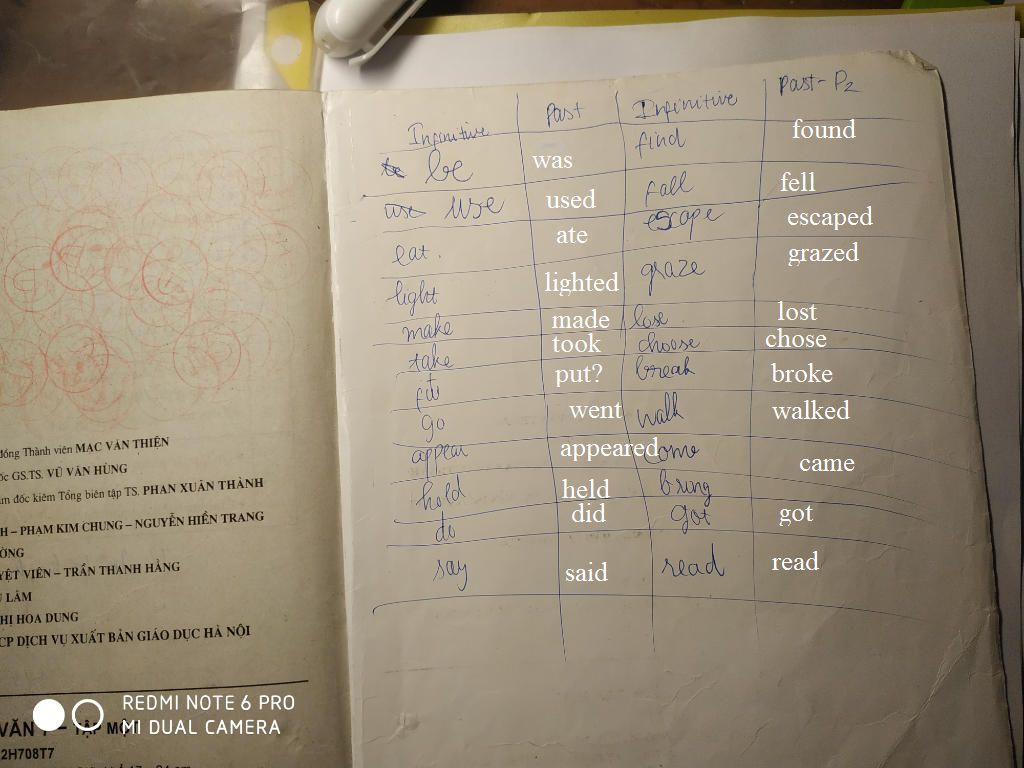 Infinitive Past Infinitive Past - P2
be was find found
use use used fall fell
eat. ate escape escaped
light lighted graze grazed
make made lose lost
take took choose chose
put? break broke
go went walk walked
appear appeared come came
hold held bring
do did got got
say said read read
đồng Thành viên MẠC VĂN THIỆN
ốc GS.TS. VŨ VĂN HÙNG
ám đốc kiêm Tổng biên tập TS. PHAN XUÂN THÀNH
H – PHẠM KIM CHUNG – NGUYỄN HIỀN TRANG
ỜNG
YỆT VIÊN – TRẦN THANH HẰNG
LÂM
HỊ HOA DUNG
CP DỊCH VỤ XUẤT BẢN GIÁO DỤC HÀ NỘI
VĂN TẬP MỘT
2H708T7
REDMI NOTE 6 PRO
MI DUAL CAMERA